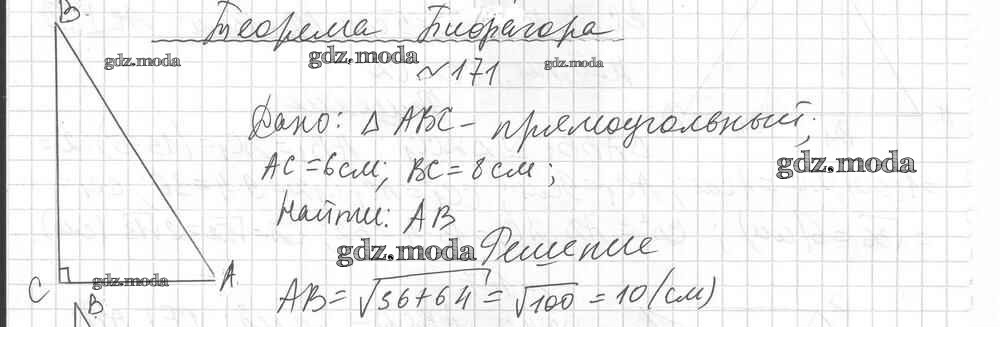 В
Теорема Пифагора
gdz.moda gdz.moda gdz.moda
~171
Дано: Δ ABC - прямоугольный;
gdz.moda
AC = 6 см; BC = 8 см;
Найти: AB
gdz.moda Решение
C gdz.moda A
AB = √36+64 = √100 = 10 (см)
В